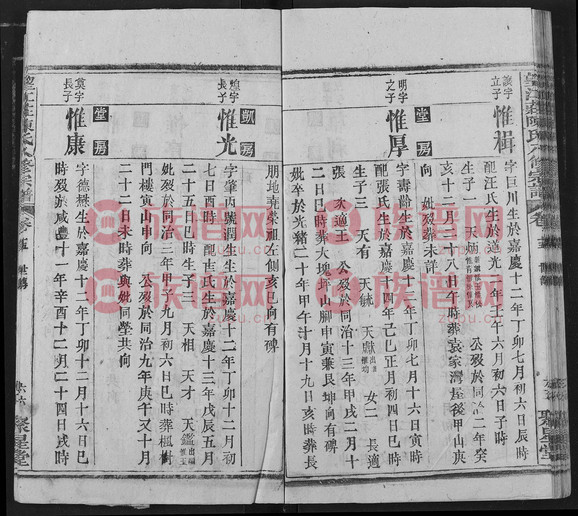 談字
立子
惟楫
字巨川生於嘉慶十二年丁卯七月初六日辰時
配汪氏生於道光二年壬午六月初六日子時
生子一 天炳 公歿於同治二年癸
亥十二月二十八日午時葬袁家灣屋後甲山庚
向 妣歿葬未詳
明字
之子
惟厚
堂房
字壽齡生於嘉慶十二年丁卯七月十六日寅時
配張氏生於嘉慶十四年己巳正月初四日巳時
生子三 天有 天毓 天獻 女二 長適
張 次適王 公歿於同治十三年甲戌二月十
二日巳時葬大塊坪山腳申寅兼艮庚坤向有碑
妣卒於光緒二十年甲午十月十九日亥時葬長
朋地堯榮祖左側亥巳向有碑
煌字
長子
惟光
凱房
字肇丙號潤生生於嘉慶十二年丁卯十二月初
七日酉時 配黃氏生於嘉慶十三年戊辰五月
二十五日巳時生子三 天相 天才 天鑑
妣歿於同治三年甲子九月初六日巳時葬楓樹
門樓寅山申向 公歿於同治九年庚午又十月
二十二日未時葬與妣同塋共向
奠字
長子
惟康
堂房
字德懋生於嘉慶十二年丁卯十二月十六日巳
時歿於咸豐十一年辛酉十二月二十四日戌時
聚星堂
族譜网